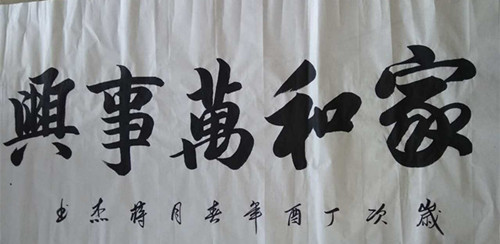 家和萬事興
歲次丁酉年春月特杰书